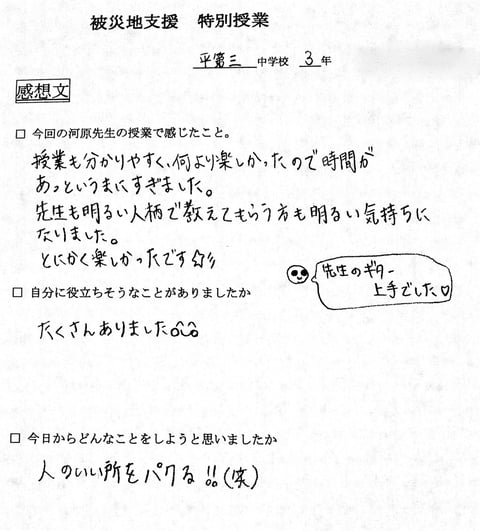 被災地支援 特別授業
平第三 中学校 3 年
感想文
□ 今回の河原先生の授業で感じたこと。
授業も分かりやすく、何より楽しかったので時間が
あっというまにすぎました。
先生も明るい人柄で教えてもらう方も明るい気持ちに
なりました。
とにかく楽しかったです☆彡
先生のギター
上手でした♡
□ 自分に役立ちそうなことがありましたか
たくさんありました^^
□ 今日からどんなことをしようと思いましたか
人のいい所をパクる!!(笑)